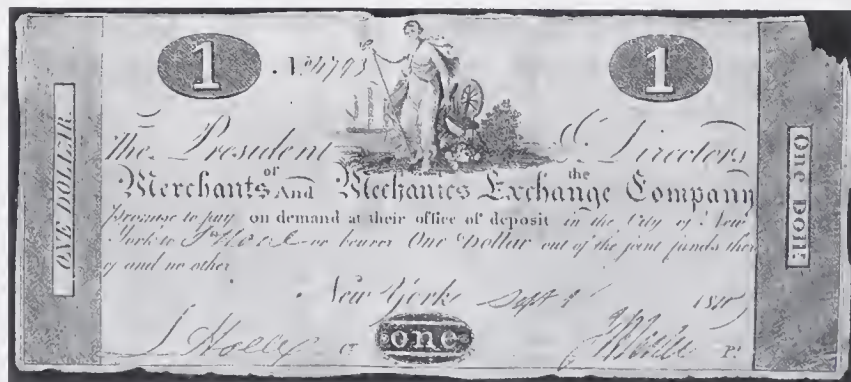 1 1
ONE DOLLAR
The President & Directors
of the
Merchants And Mechanics Exchange Company
promise to pay on demand at their office of deposit in the City of New
York to or bearer One Dollar out of the joint funds ther
of and no other
New York Sept
J Holly Cr one Pt
One Doll: